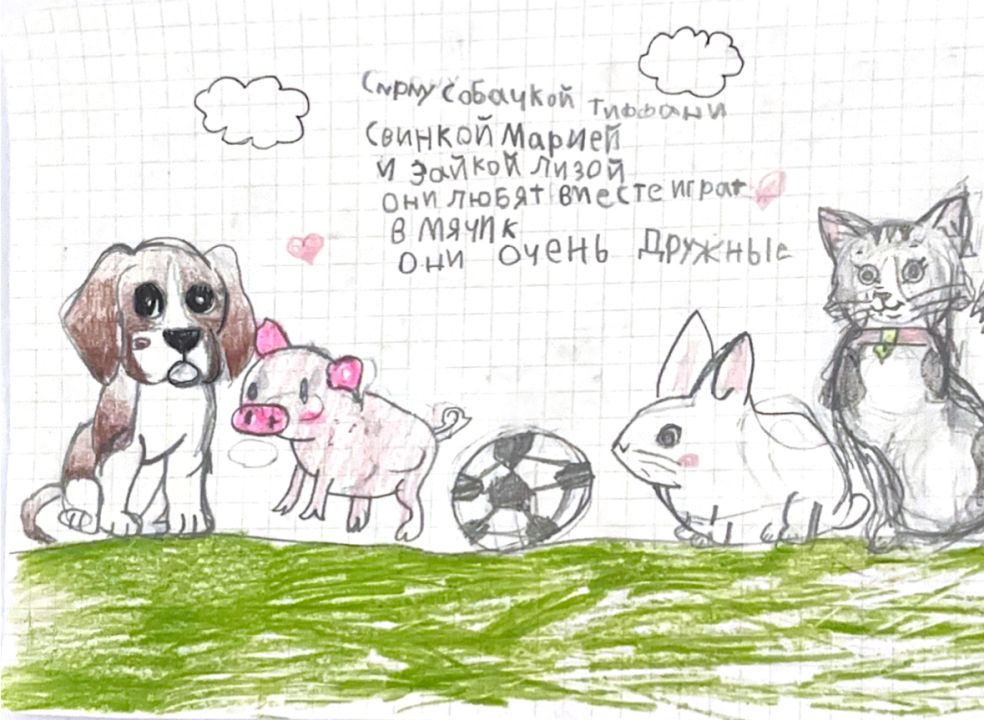 собачкой тиффани
Свинкой Марией
и зайкой лизой
они любят вместе играт
в мячик
они очень дружные